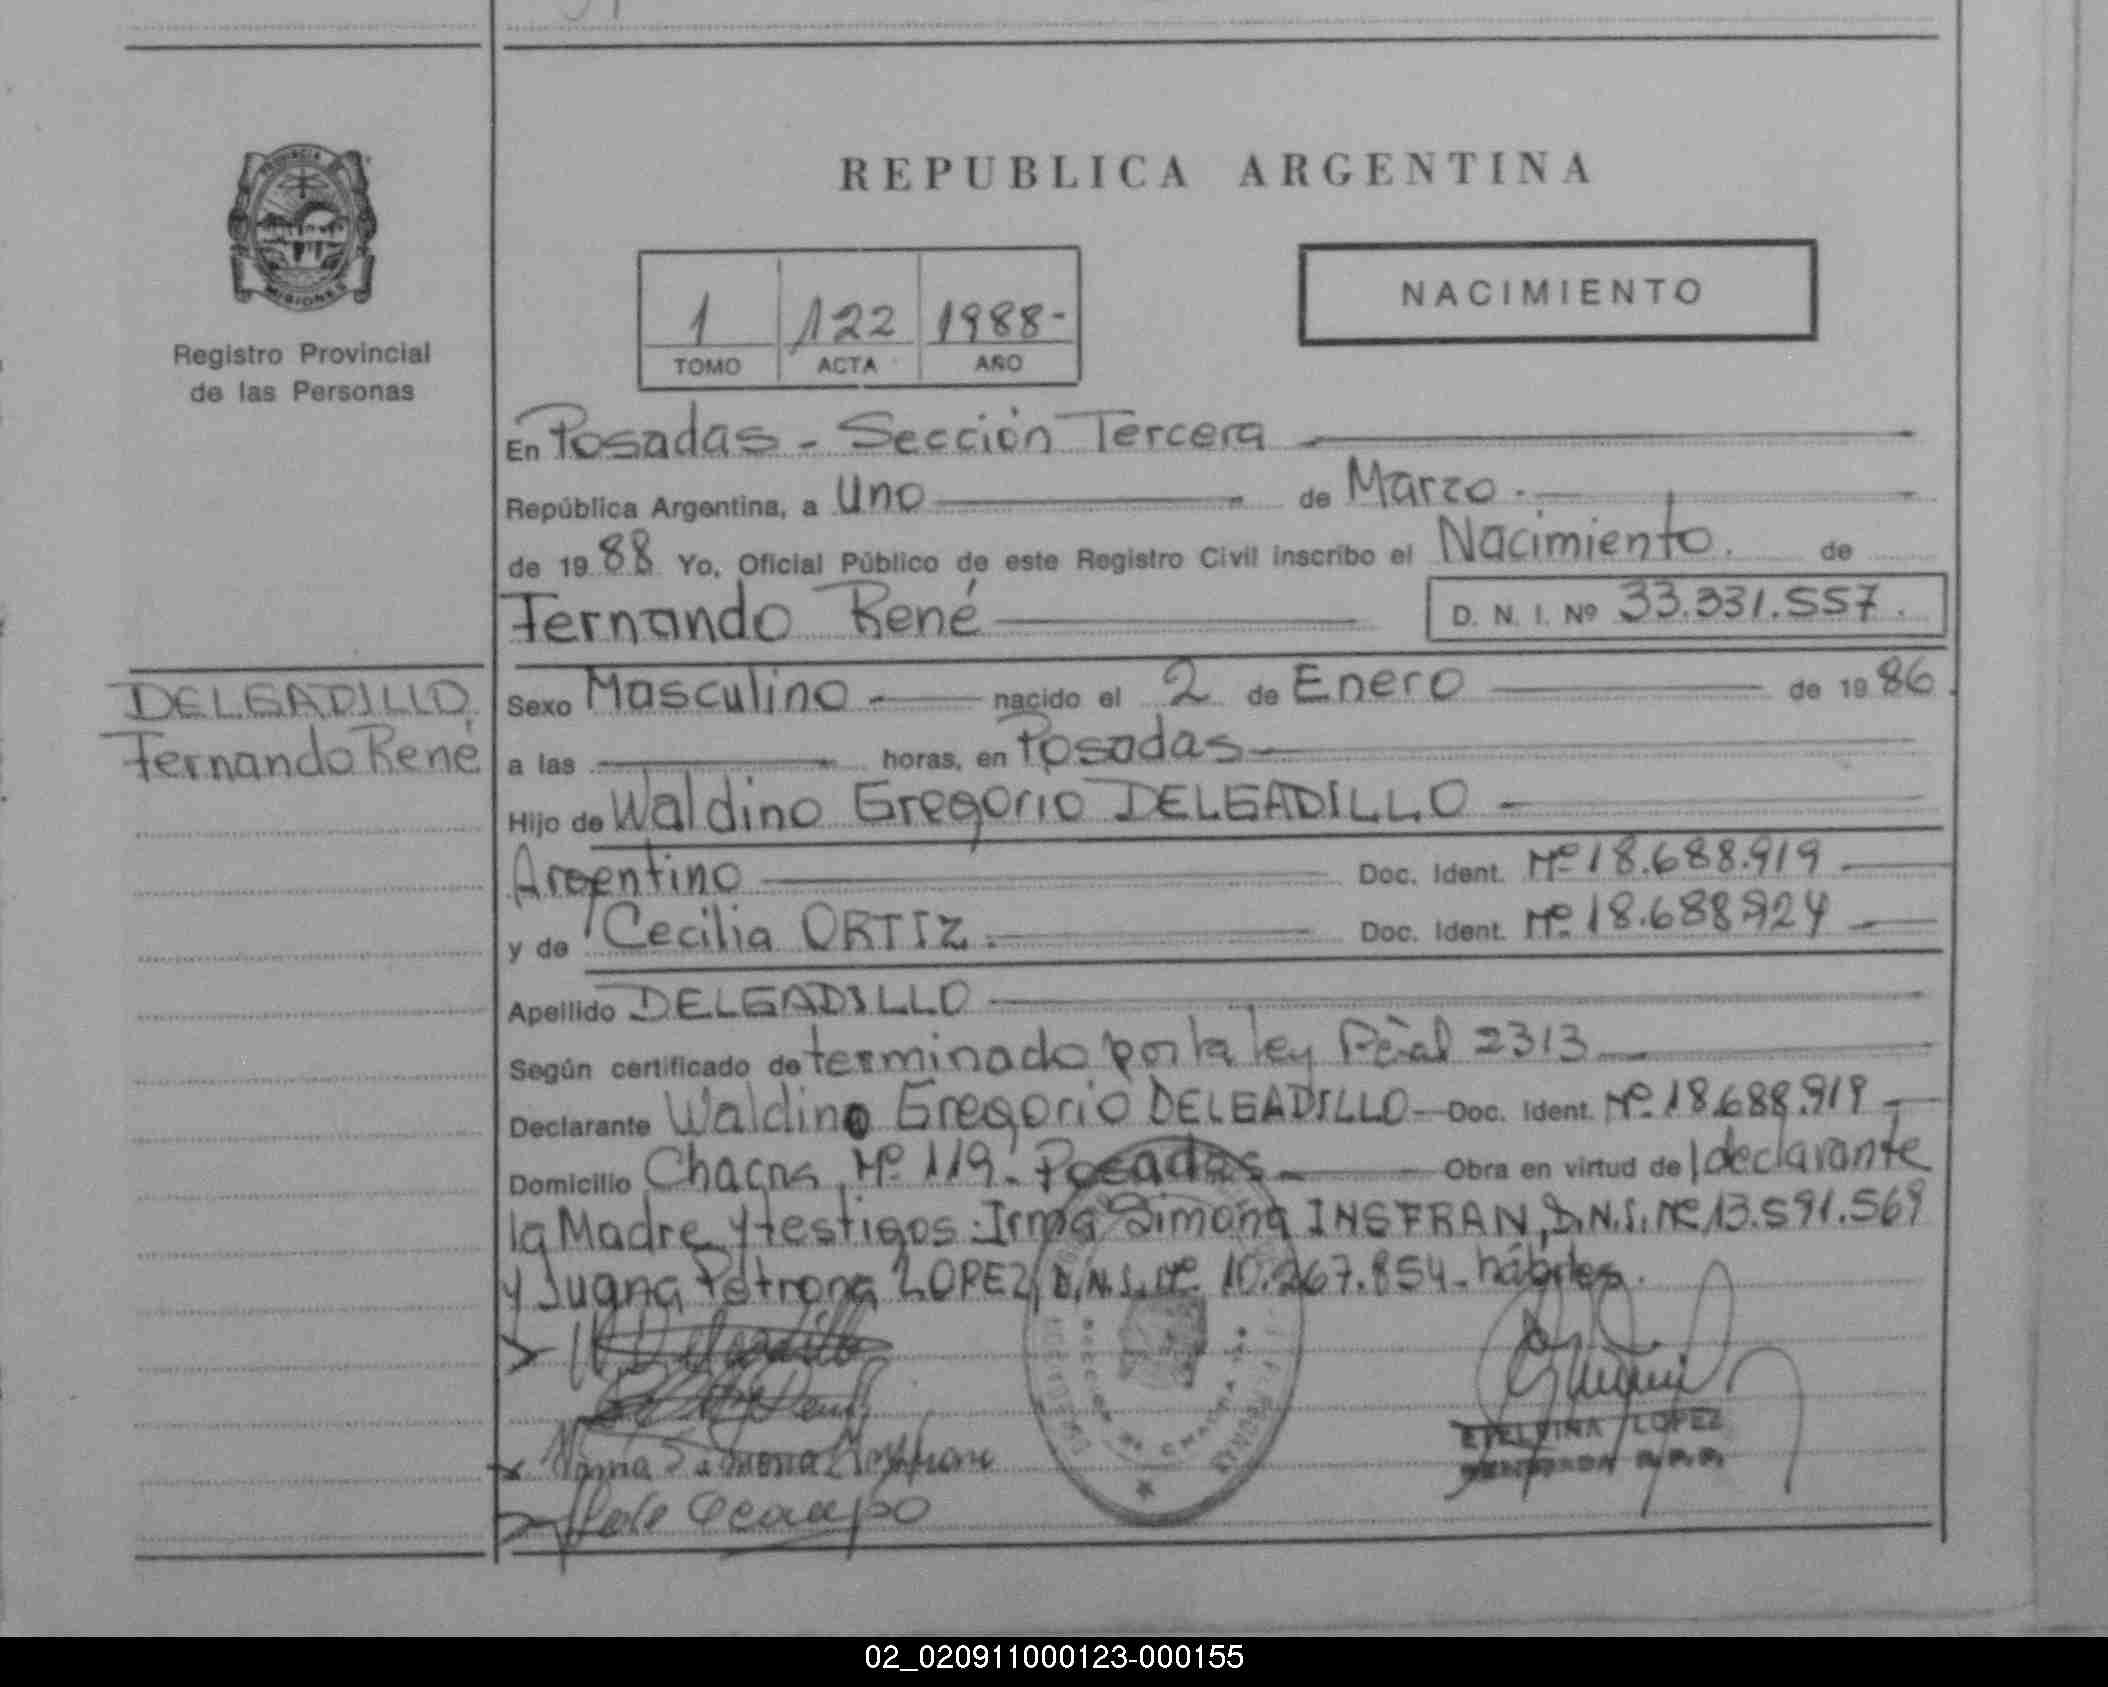 PROVINCIA
MISIONES
Registro Provincial
de las Personas
REPUBLICA ARGENTINA
1 122 1988-
TOMO ACTA AÑO
NACIMIENTO
En Posadas - Sección Tercera
República Argentina, a Uno de Marzo.
de 1988 Yo, Oficial Público de este Registro Civil inscribo el Nacimiento. de
Fernando René D. N. I. Nº 33.331.557.
DELGADILLO,
Fernando René
Sexo Masculino - nacido el 2 de Enero de 1986.
a las horas, en Posadas
Hijo de Waldino Gregorio DELGADILLO -
Argentino Doc. Ident. Nº 18.688.919
y de Cecilia ORTIZ. Doc. Ident. Nº 18.688.924
Apellido DELGADILLO
Según certificado determinado por la ley 2313
Declarante Waldino Gregorio DELGADILLO - Doc. Ident. Nº 18.688.919
Domicilio Chacra Nº 119. Posadas Obra en virtud del declarante
la Madre y testigos: Irma Simona INSFRAN, D.N.I. Nº 13.591.569
y Juana Petrona LOPEZ, D.N.I. Nº 10.267.854 - hábiles.
ETELVINA LOPEZ
Ocampo
02_020911000123-000155